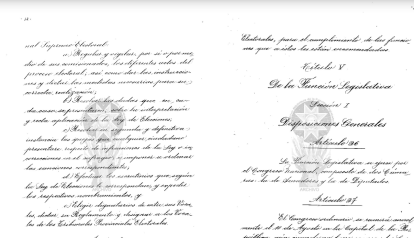 nal Supremo Electoral:
a) Regular y vigilar, por sí o por me-
dio de sus comisionados, los diferentes actos del
proceso electoral, así como dar las instruccio-
nes y dictar las medidas necesarias para su
correcta realización;
b) Resolver las dudas que, en ca-
da caso, se presentaren sobre la interpretación
y recta aplicación de la Ley de Elecciones;
c) Resolver en segunda y definitiva
instancia las quejas que cualquier ciudadano
presentare respecto de infracciones de la Ley o
y imponer u ordenar
las sanciones correspondientes;
d) Efectuar los escrutinios que según
la Ley de Elecciones le correspondan, y expedir
los respectivos nombramientos, y
e) Elegir
les, dictar su Reglamento y designar a los Voca-
les de los Tribunales Provinciales Electorales.
Electorales, para el cumplimiento de las funcio-
nes que a éstos les están encomendadas.
Título V
De la Función Legislativa
Sección I
Disposiciones Generales
Artículo 36
La Función Legislativa se ejerce por
el Congreso Nacional, compuesto de dos Cáma-
ras: la de Senadores y la de Diputados.
Artículo 37
El Congreso ordinario se reunirá anual-
mente el 10 de Agosto en la Capital de la Re-